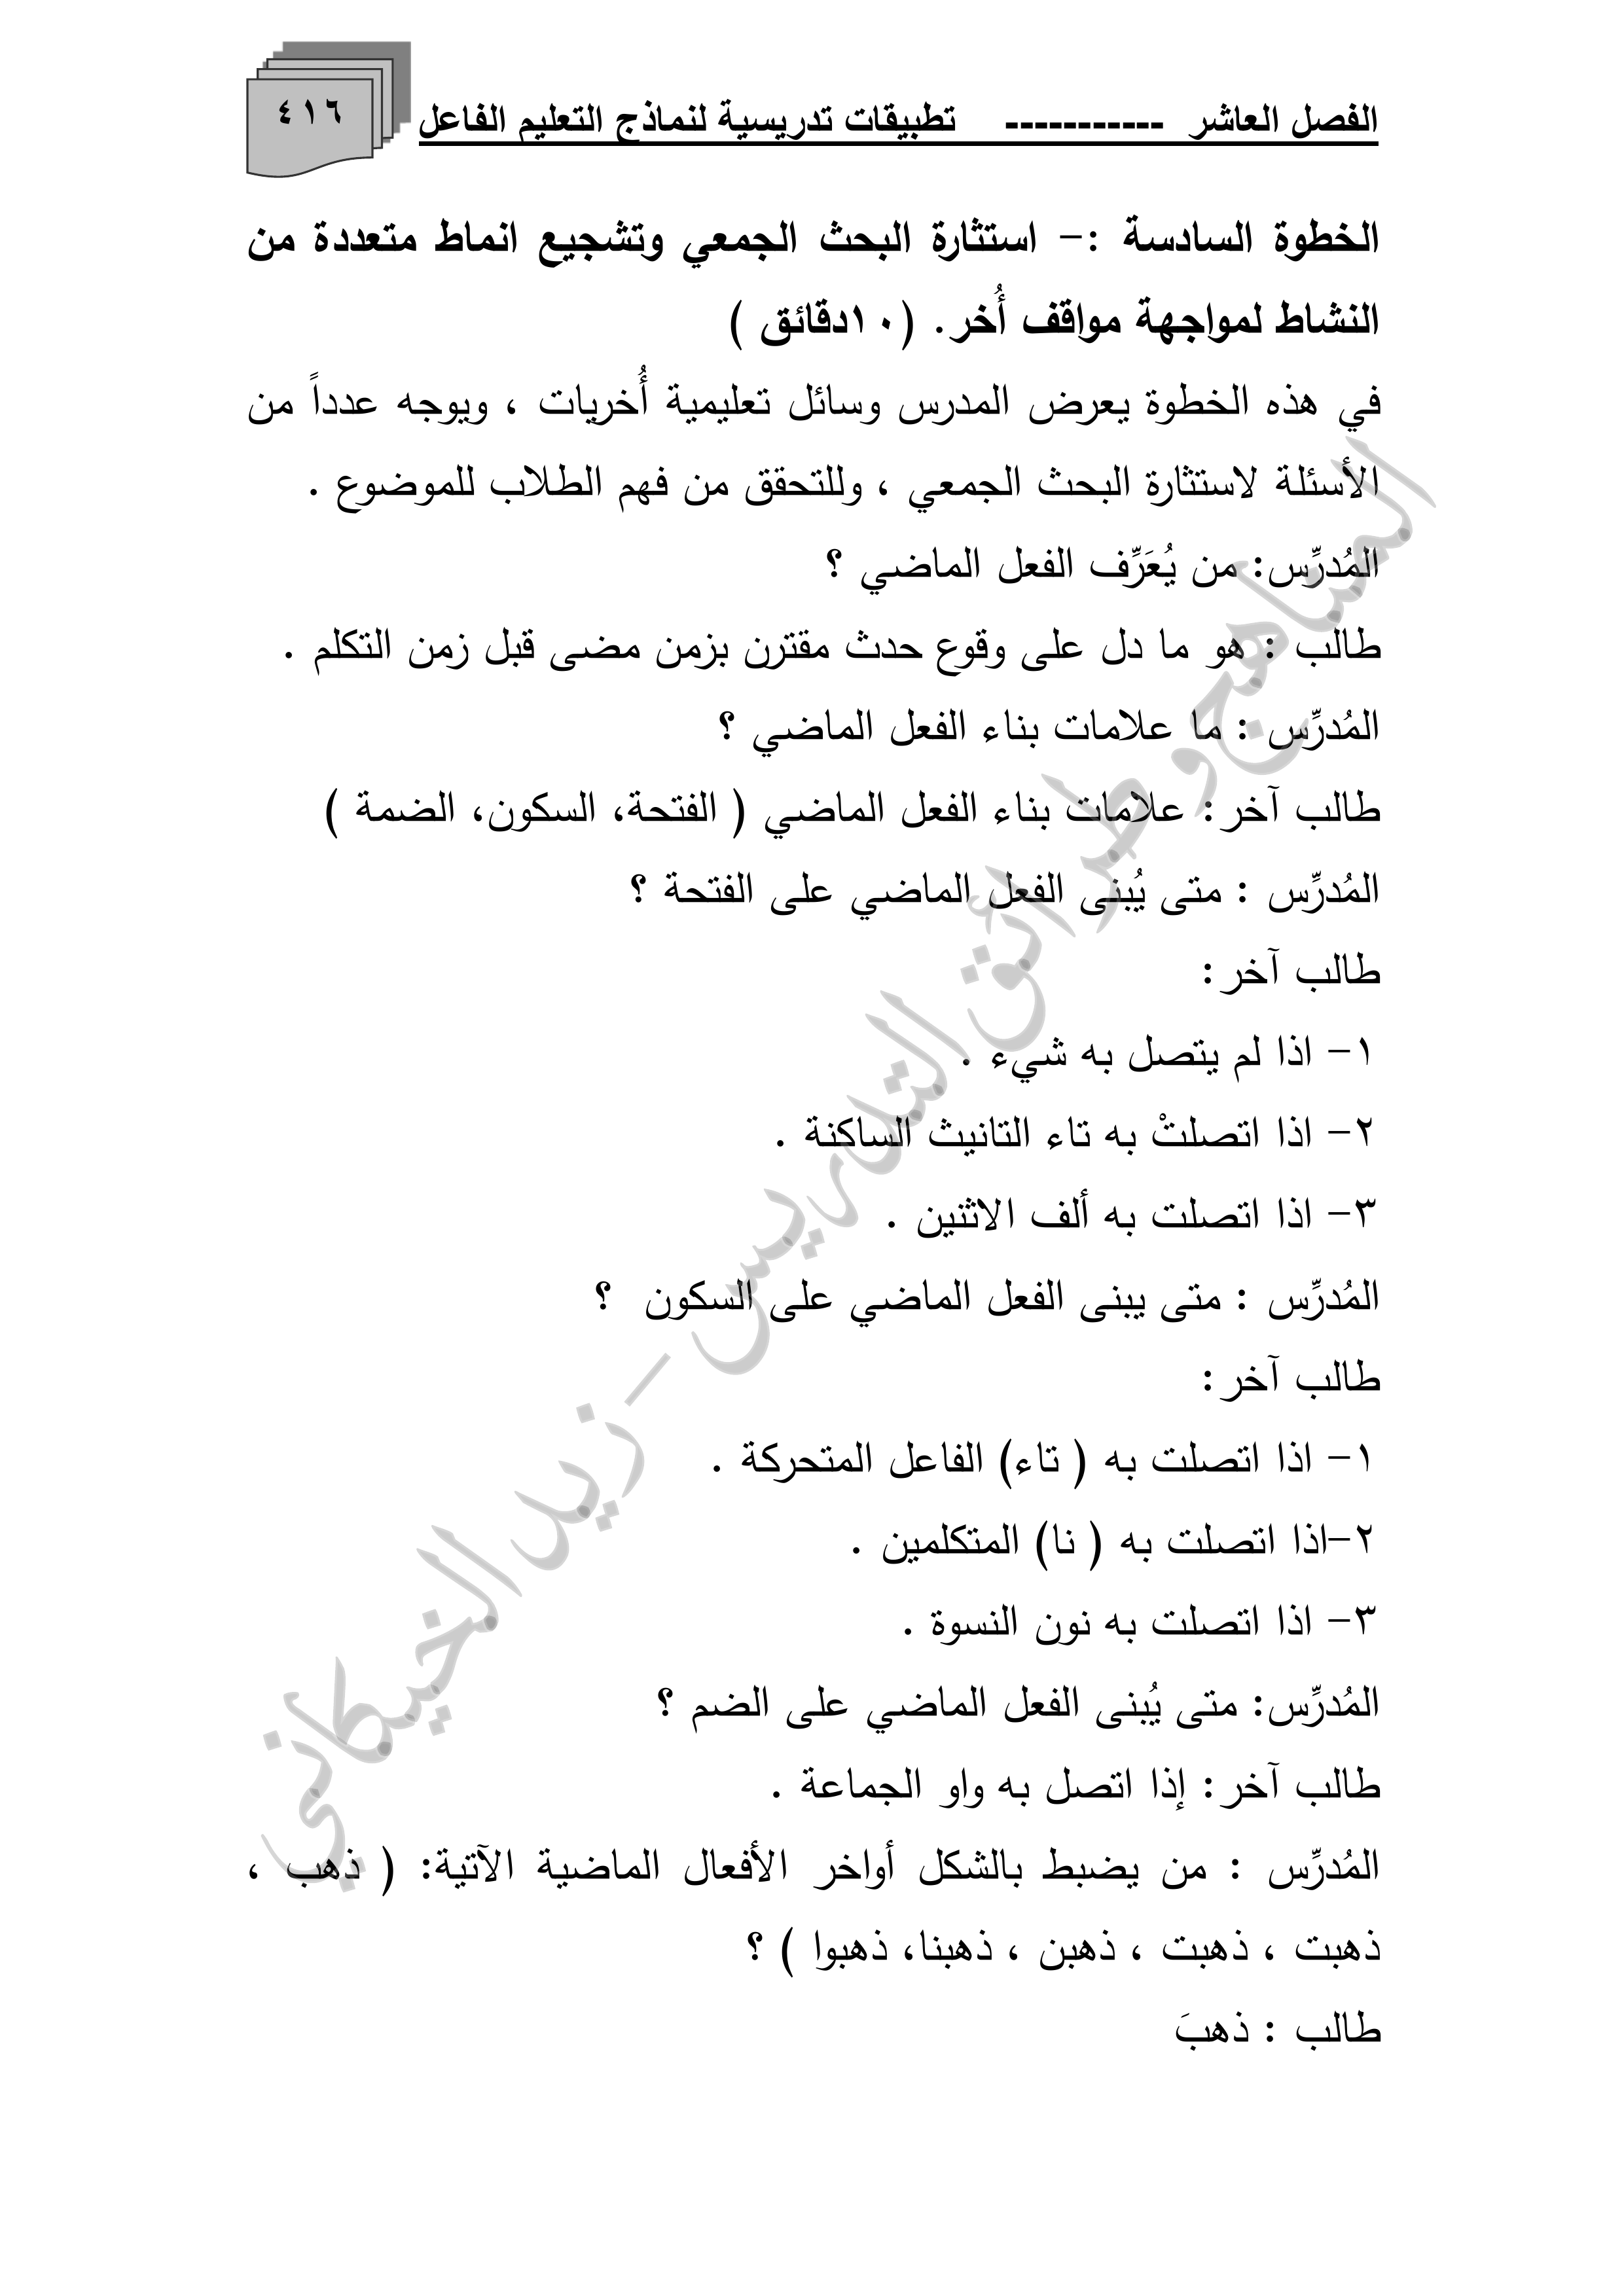 الفصل العاشر ----------- تطبيقات تدريسية لنماذج التعليم الفاعل
٤١٦
الخطوة السادسة :- استثارة البحث الجمعي وتشجيع انماط متعددة من
النشاط لمواجهة مواقف أُخر. (١٠دقائق )
في هذه الخطوة يعرض المدرس وسائل تعليمية أُخريات ، ويوجه عدداً من
الأسئلة لاستثارة البحث الجمعي ، وللتحقق من فهم الطلاب للموضوع .
المُدرِّس: من يُعَرِّف الفعل الماضي ؟
طالب : هو ما دل على وقوع حدث مقترن بزمن مضى قبل زمن التكلم .
المُدرِّس : ما علامات بناء الفعل الماضي ؟
طالب آخر: علامات بناء الفعل الماضي ( الفتحة، السكون، الضمة )
المُدرِّس : متى يُبنى الفعل الماضي على الفتحة ؟
طالب آخر:
١- اذا لم يتصل به شيء .
٢- اذا اتصلتْ به تاء التانيث الساكنة .
٣- اذا اتصلت به ألف الاثنين .
المُدرِّس : متى يبنى الفعل الماضي على السكون ؟
طالب آخر:
١- اذا اتصلت به ( تاء) الفاعل المتحركة .
٢-اذا اتصلت به ( نا) المتكلمين .
٣- اذا اتصلت به نون النسوة .
المُدرِّس: متى يُبنى الفعل الماضي على الضم ؟
طالب آخر: إذا اتصل به واو الجماعة .
المُدرِّس : من يضبط بالشكل أواخر الأفعال الماضية الآتية: ( ذهب ،
ذهبت ، ذهبت ، ذهبن ، ذهبنا، ذهبوا ) ؟
طالب : ذهبَ
المناهج وطرائق التدريس - زيد الخيكاني